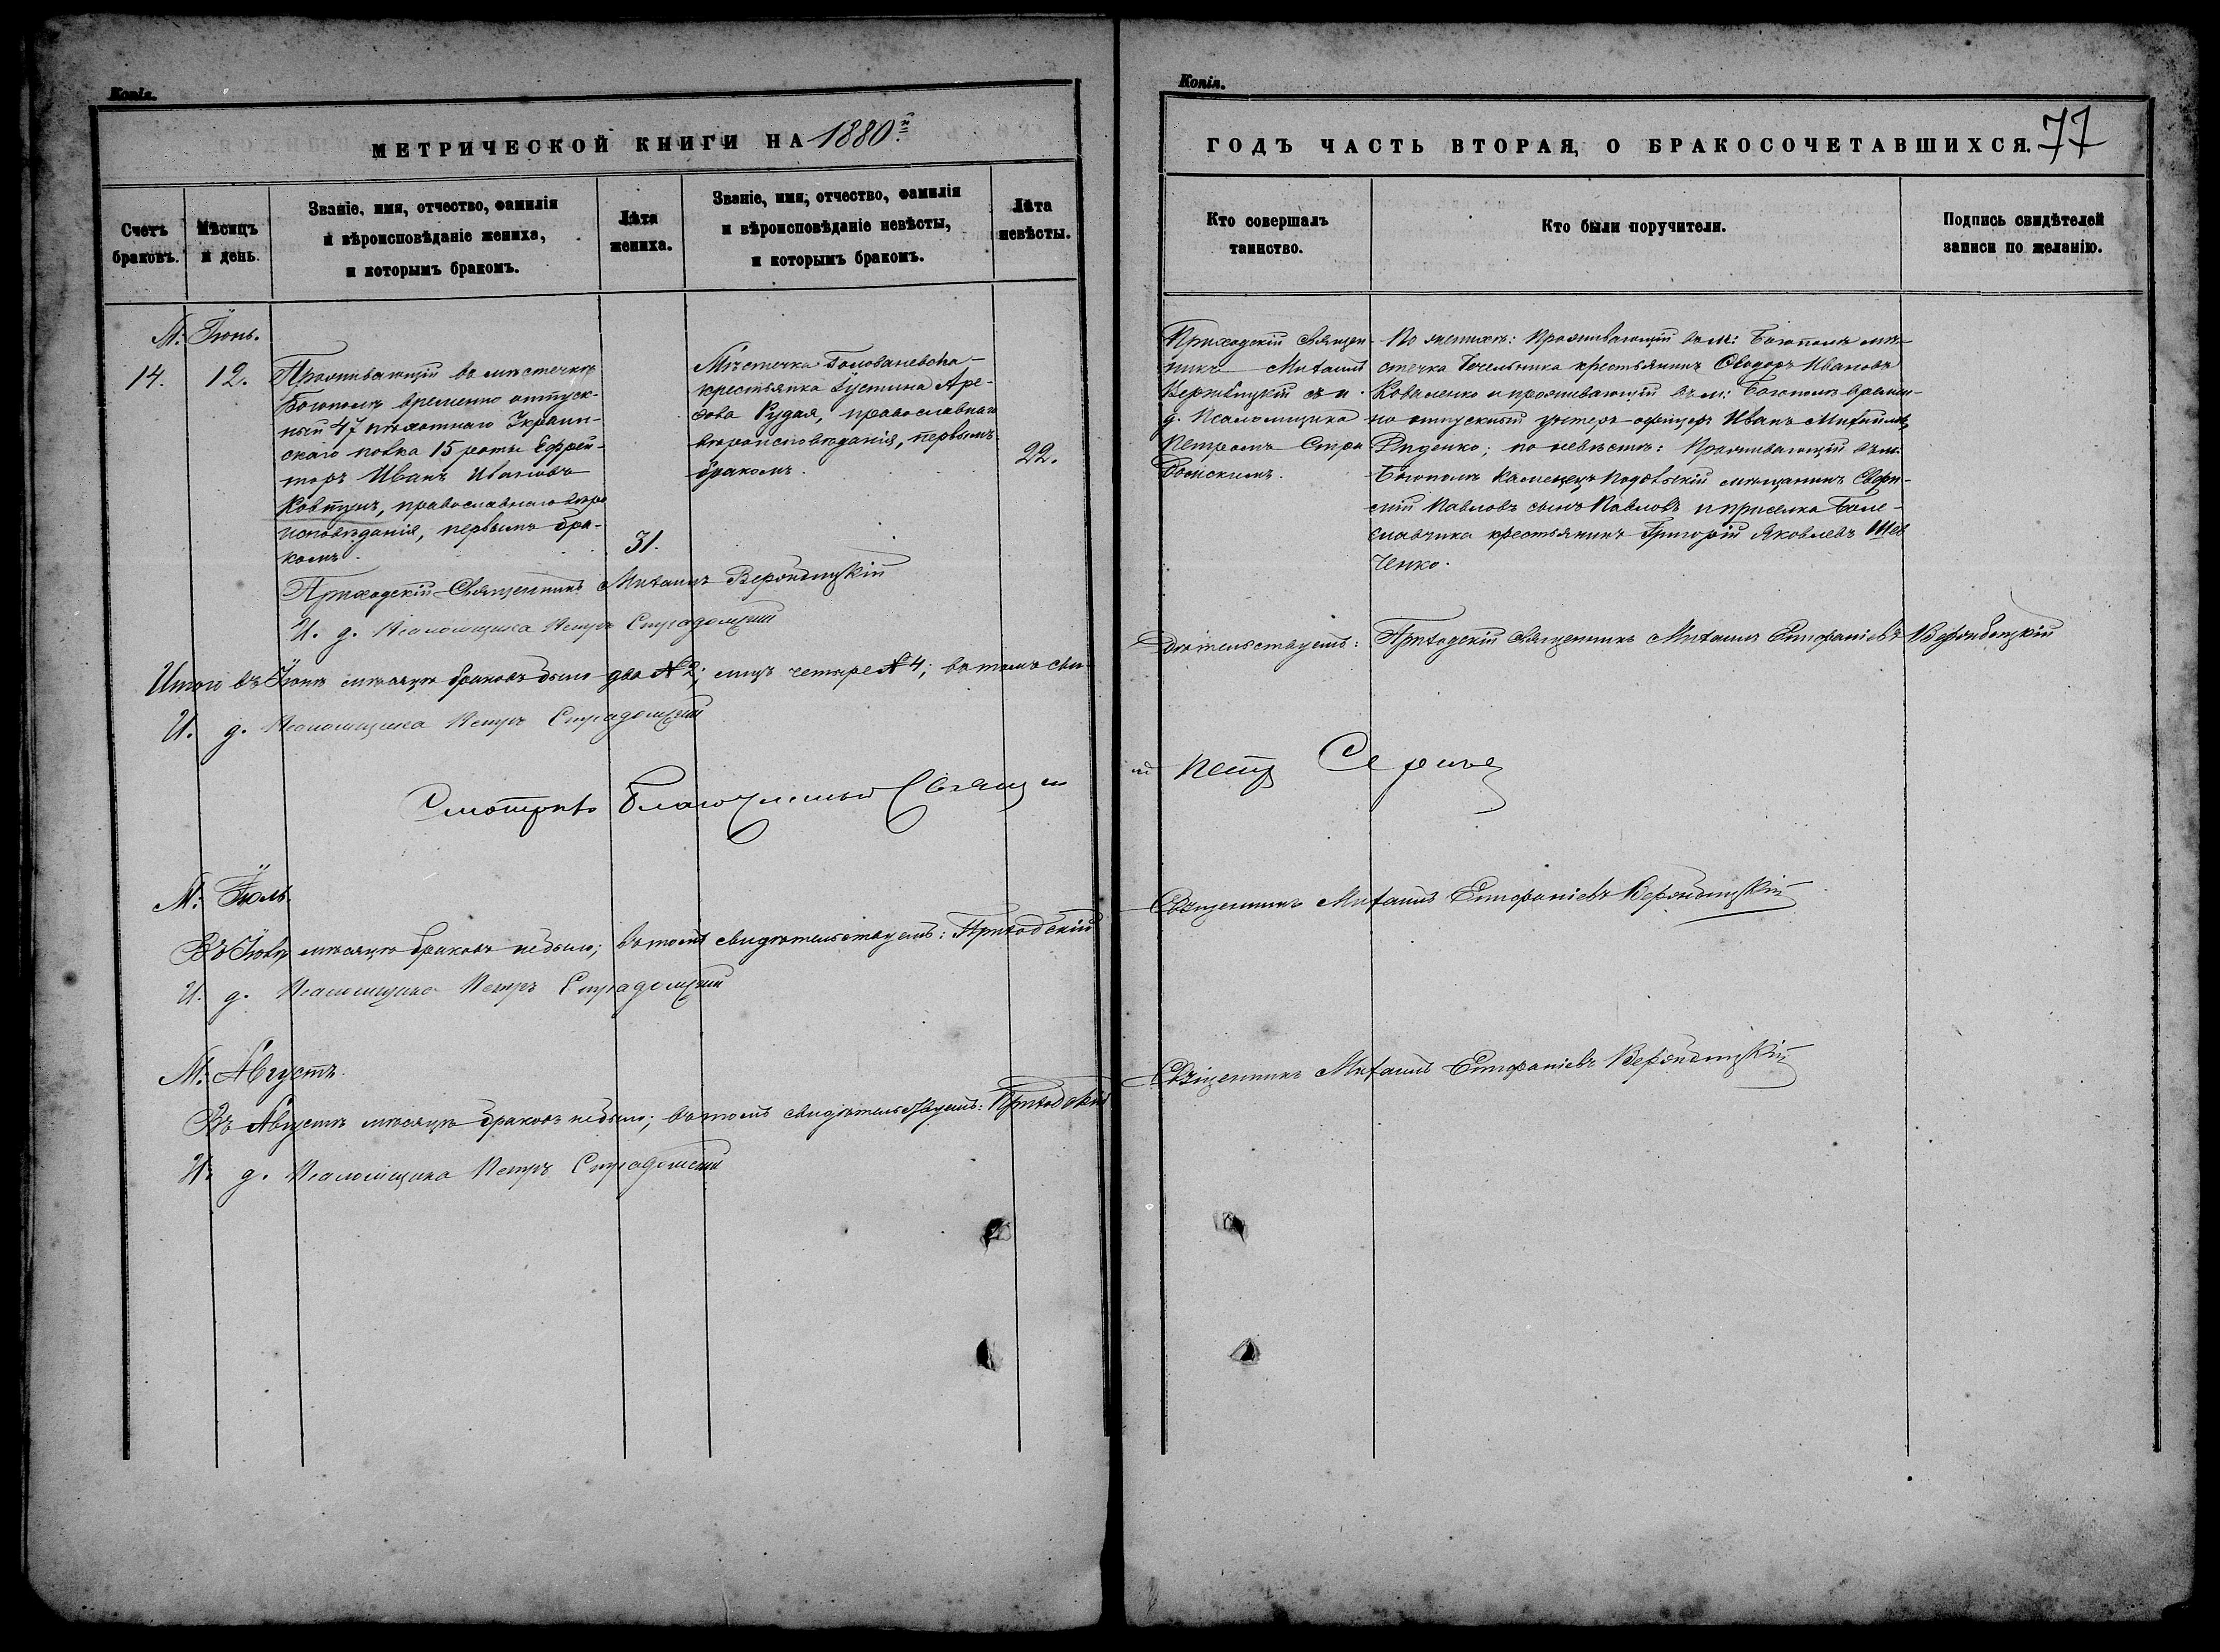 Копія.
МЕТРИЧЕСКОЙ КНИГИ НА 1880й
Счетъ браковъ.
Мѣсяцъ и день.
Званіе, имя, отчество, фамилія
и вѣроисповѣданіе жениха,
и которымъ бракомъ.
Лѣта жениха.
Званіе, имя, отчество, фамилія
и вѣроисповѣданіе невѣсты,
и которымъ бракомъ.
Лѣта невѣсты.
М. Іюнь.
14.
12.
Проживающій въ мѣстечкѣ
Богополѣ временно отпуск-
ный 47 пѣхотнаго Украин-
скаго полка 15 роты Ефрей-
торъ Иванъ Ивановъ
Ковтунъ, православнаго вѣро
исповѣданія, первымъ бра-
комъ.
31.
Мѣстечка Голованевска
крестьянка Іустина Аре-
фова Рудая, православнаго
вѣроисповѣданія, первымъ
бракомъ.
22.
Приходскій Священникъ Михаилъ Вержбицкій
И. д. Псаломщика Петръ Страдомскій
Итого въ Іюнѣ мѣсяцѣ браковъ было два № 2; лицъ четыре № 4; въ томъ сви-
И. д. Псаломщика Петръ Страдомскій
Смотрѣлъ Благочинный Священ
М. Іюль.
Въ Іюлѣ мѣсяцѣ браковъ небыло; въ томъ свидѣтельствуетъ: Приходскій
И. д. Псаломщика Петръ Страдомскій
М. Августъ.
Въ Августѣ мѣсяцѣ браковъ небыло; въ томъ свидѣтельствуетъ: Приходскій
И. д. Псаломщика Петръ Страдомскій
Копія.
ГОДЪ ЧАСТЬ ВТОРАЯ, О БРАКОСОЧЕТАВШИХСЯ.
77
Кто совершалъ
таинство.
Кто были поручители.
Подпись свидѣтелей
записи по желанію.
Приходскій Священ-
никъ Михаилъ
Вержбицкій съ и.
д. Псаломщика
Петромъ Стра
домскимъ.
По женихѣ: Проживающій въ м: Богополѣ мѣ-
стечка Бечельника крестьянинъ Ѳеодоръ Ивановъ
Коваленко и проживающій въ м: Богополѣ времен-
но отпускный унтеръ-офицеръ Иванъ Михайловъ
Диденко; по невѣстѣ: Проживающій въ м.
Богополѣ Каменецъ Подольскій мѣщанинъ
Павловъ сынъ Павловъ и приселка Боле-
славчика крестьянинъ Григорій Яковлевъ Шев
ченко.
дѣтельствуетъ: Приходскій Священникъ Михаилъ Епифаніевъ Вержбицкій
Петръ
Священникъ Михаилъ Епифаніевъ Вержбицкій
Священникъ Михаилъ Епифаніевъ Вержбицкій